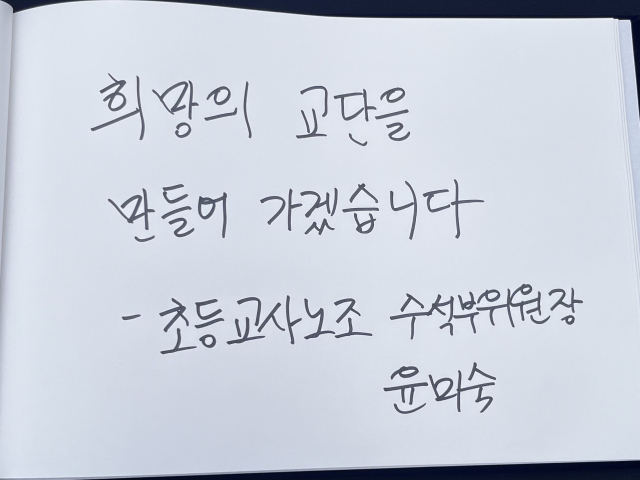 희망의 교단을
만들어 가겠습니다
- 초등교사노조 수석부위원장
윤미숙